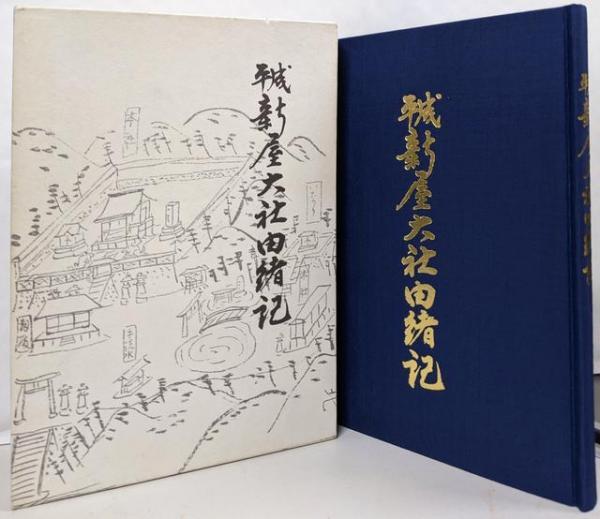 平成新屋大社由緒記
平成新屋大社由緒記
平成新屋大社由緒記